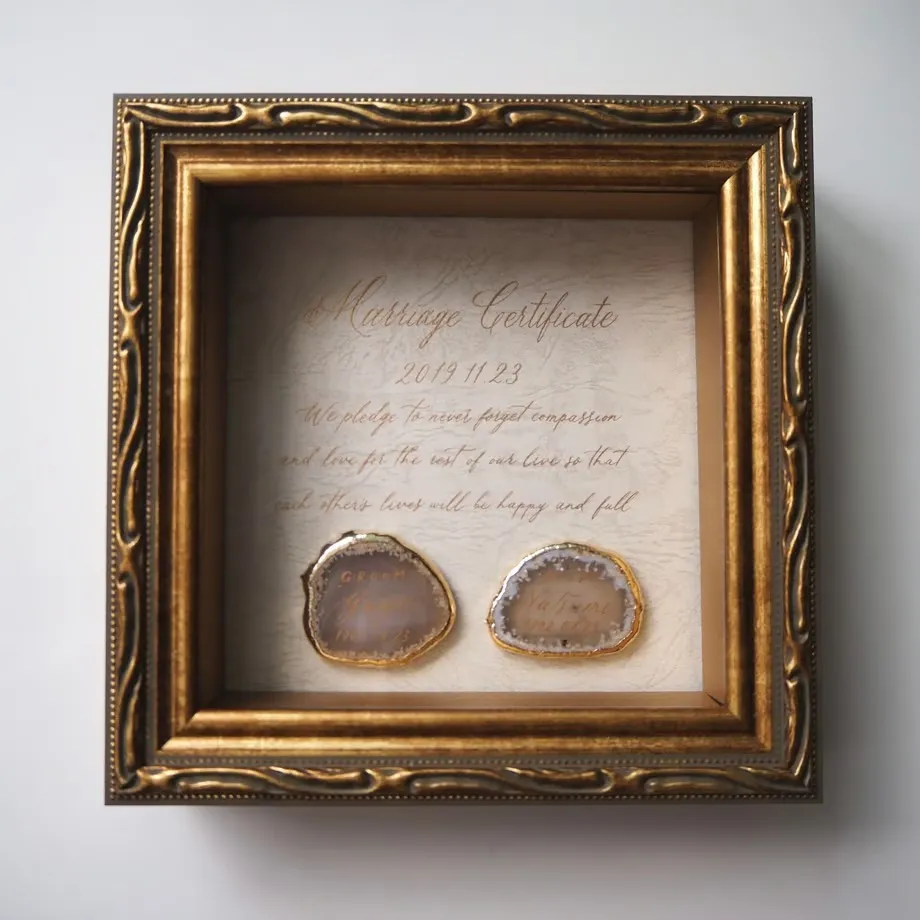 Marriage Certificate
2019 11.23
We pledge to never forget compassion
and love for the rest of our live so that
each others lives will be happy and full
GROOM